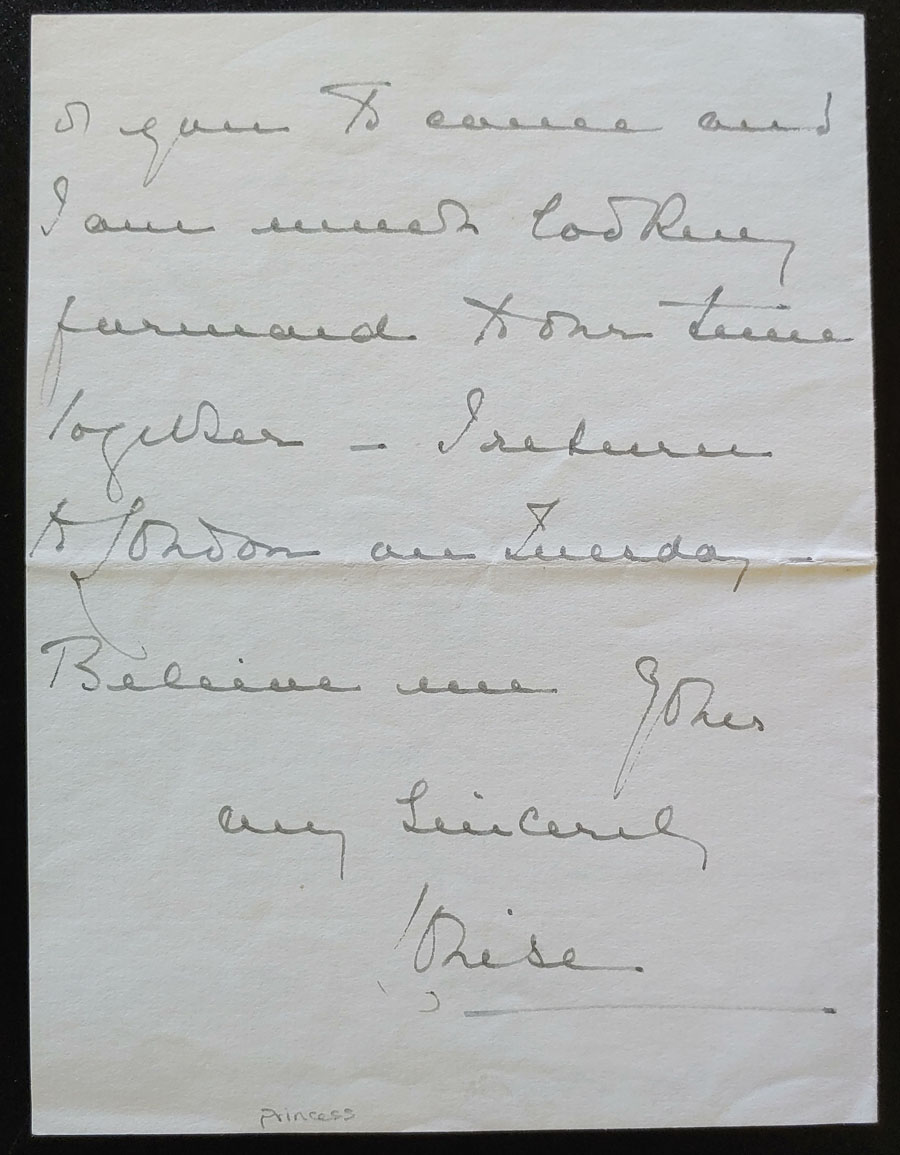 of you to come and
I am much looking
forward to our time
together – I return
to London on Tuesday –
Believe me Yours
very Sincerely
Louise
princess